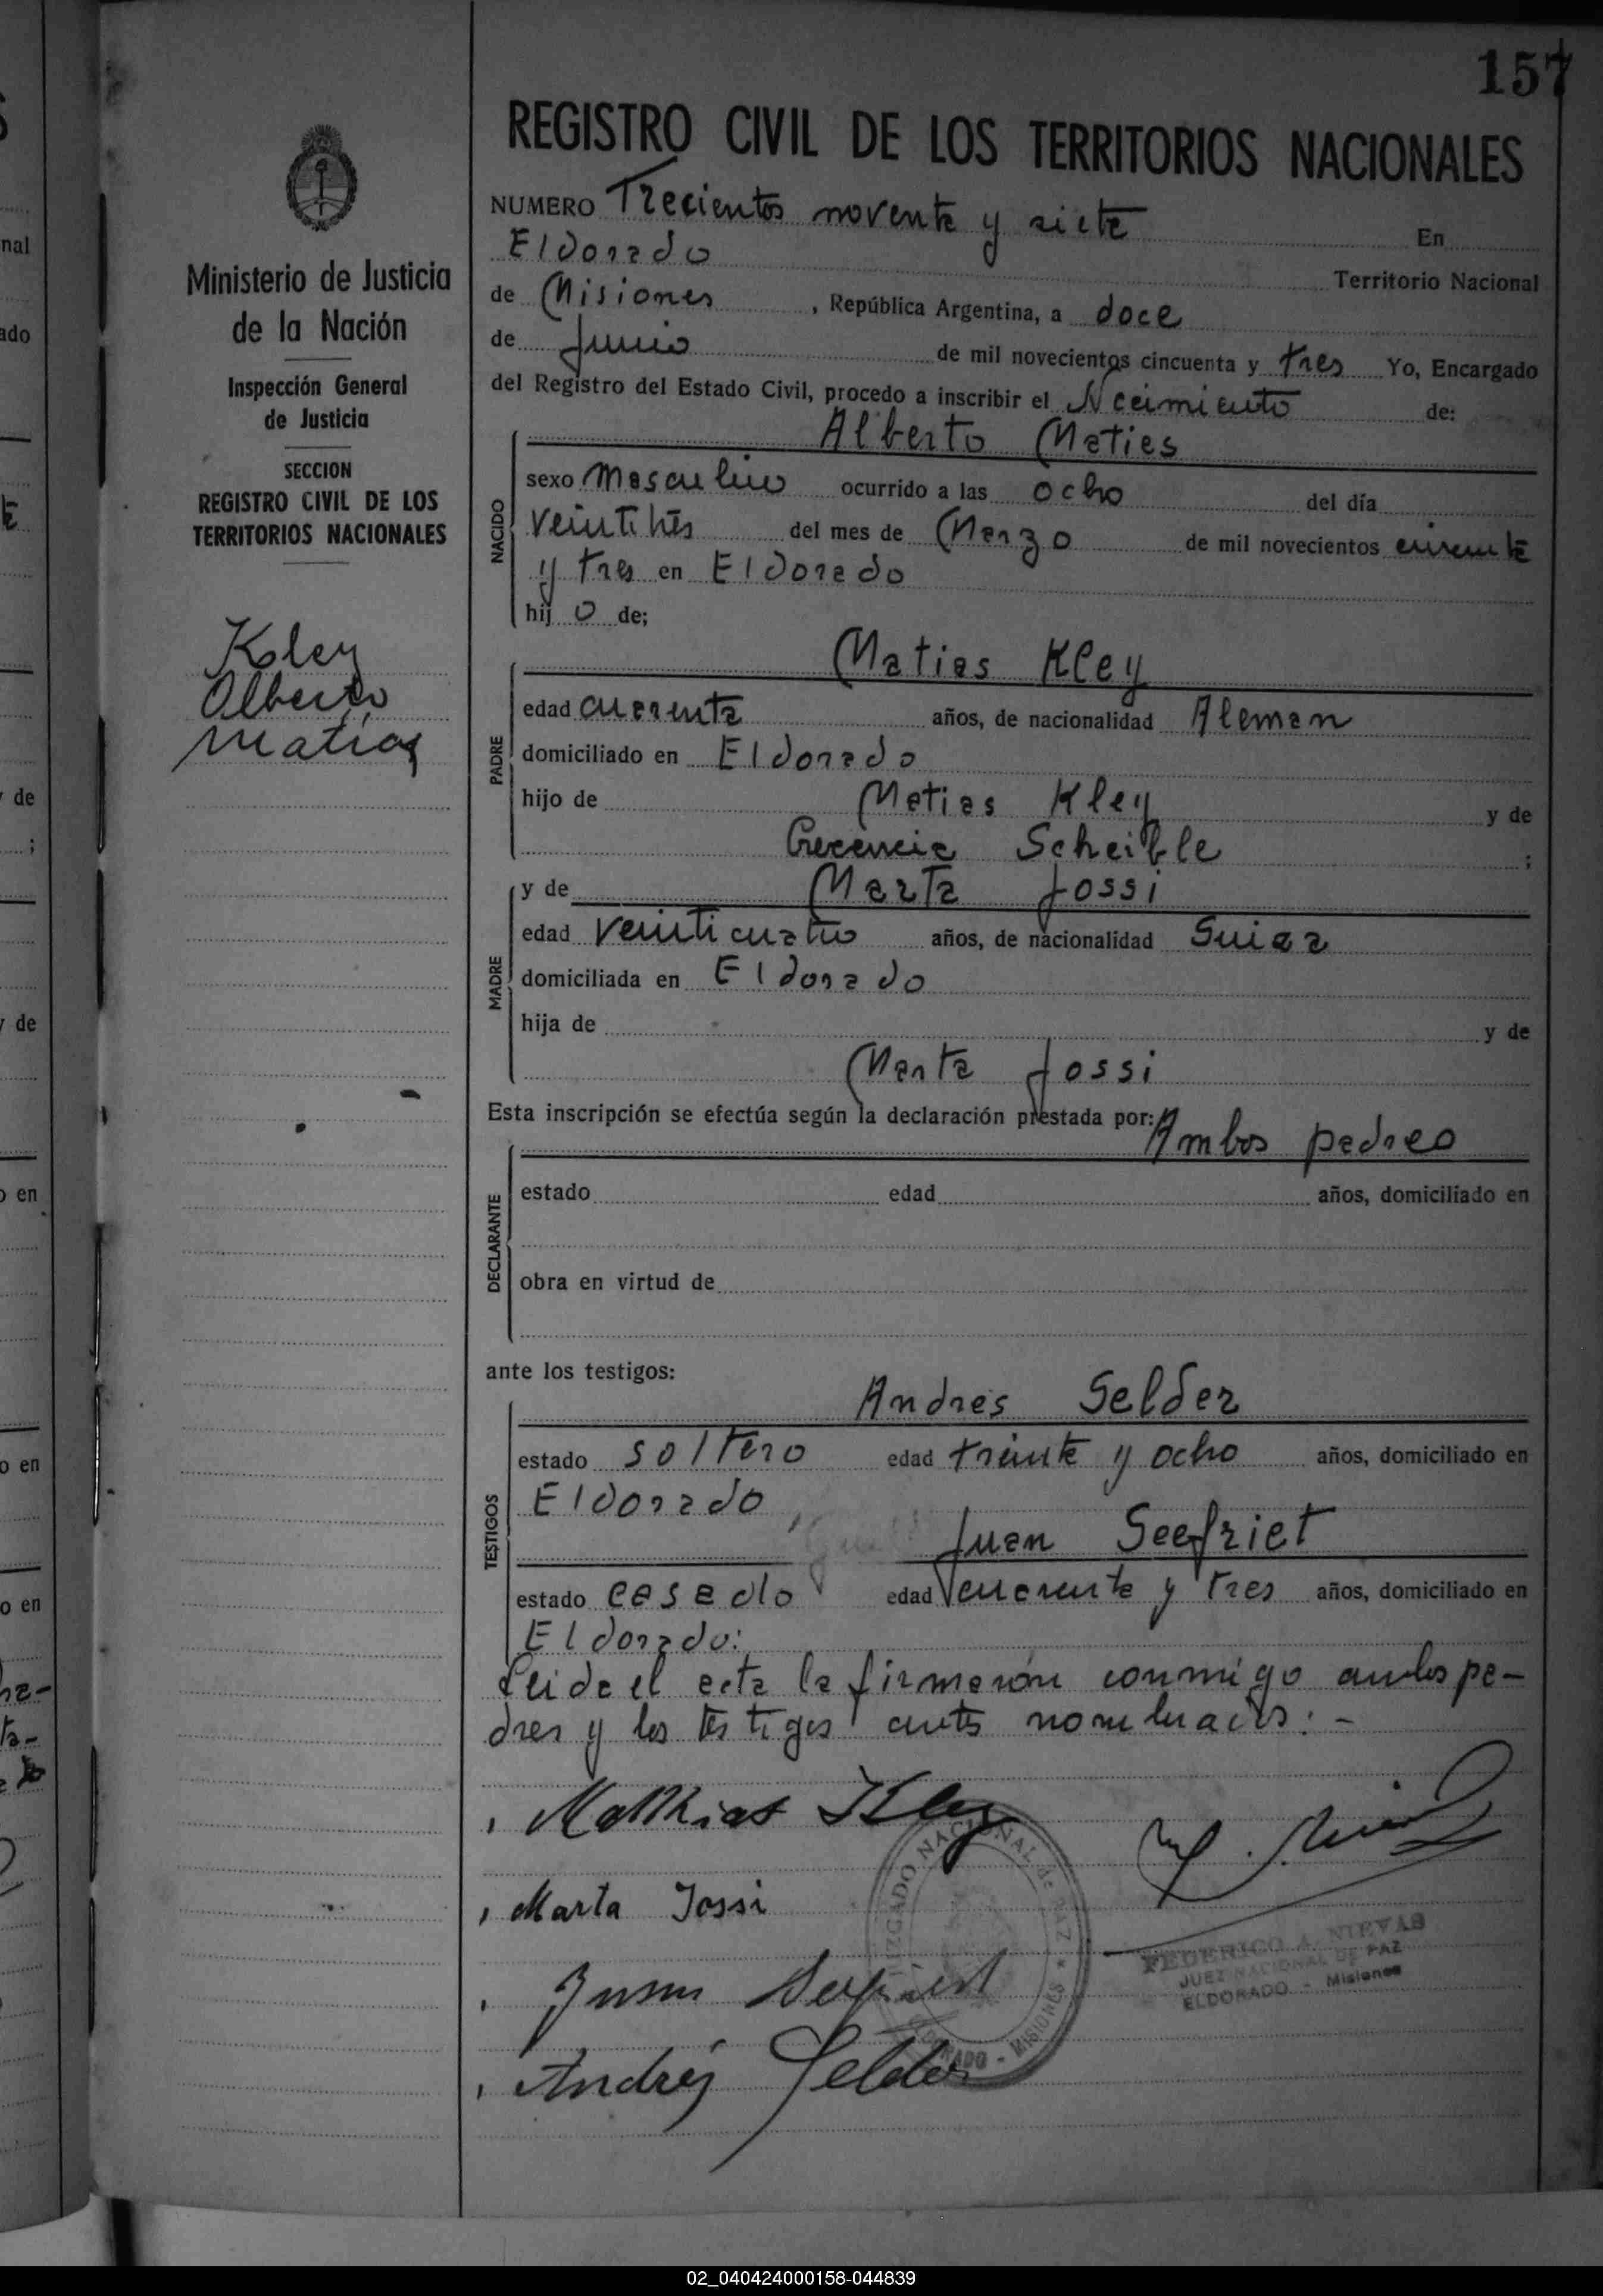 157
REGISTRO CIVIL DE LOS TERRITORIOS NACIONALES
Ministerio de Justicia
de la Nación
Inspección General
de Justicia
SECCION
REGISTRO CIVIL DE LOS
TERRITORIOS NACIONALES
Koley
Alberto
Matias
NUMERO Trecientos noventa y siete En
Eldorado Territorio Nacional
de Misiones, República Argentina, a doce
de Junio de mil novecientos cincuenta y tres Yo, Encargado
del Registro del Estado Civil, procedo a inscribir el Ncimiento de:
Alberto Maties
NACIDO
sexo Masculino ocurrido a las ocho del día
veintitrés del mes de Marzo de mil novecientos
y tres en Eldorado
hijo de;
Matias Kley
PADRE
edad cuarenta años, de nacionalidad Aleman
domiciliado en Eldorado
hijo de Matias Kley y de
Crecencia Scheible ;
y de Marta Jossi
MADRE
edad veinticuatro años, de nacionalidad Suiza
domiciliada en Eldorado
hija de y de
Marta Jossi
Esta inscripción se efectúa según la declaración prestada por: Ambos padres
DECLARANTE
estado edad años, domiciliado en
obra en virtud de
ante los testigos:
Andres Selder
TESTIGOS
estado soltero edad treinta y ocho años, domiciliado en
Eldorado
Juan Seefriet
estado casado edad cuarenta y tres años, domiciliado en
Eldorado:
Leida el acta la firmarón conmigo ambos pa-
dres y los testigos antes nombrados: -
Matthias Kley
Marta Jossi
Juan
Andrés Selder
JUZGADO NACIONAL de PAZ * ELDORADO - MISIONES
FEDERICO A. NIEVAS
JUEZ NACIONAL DE PAZ
ELDORADO - Misiones
02_040424000158-044839